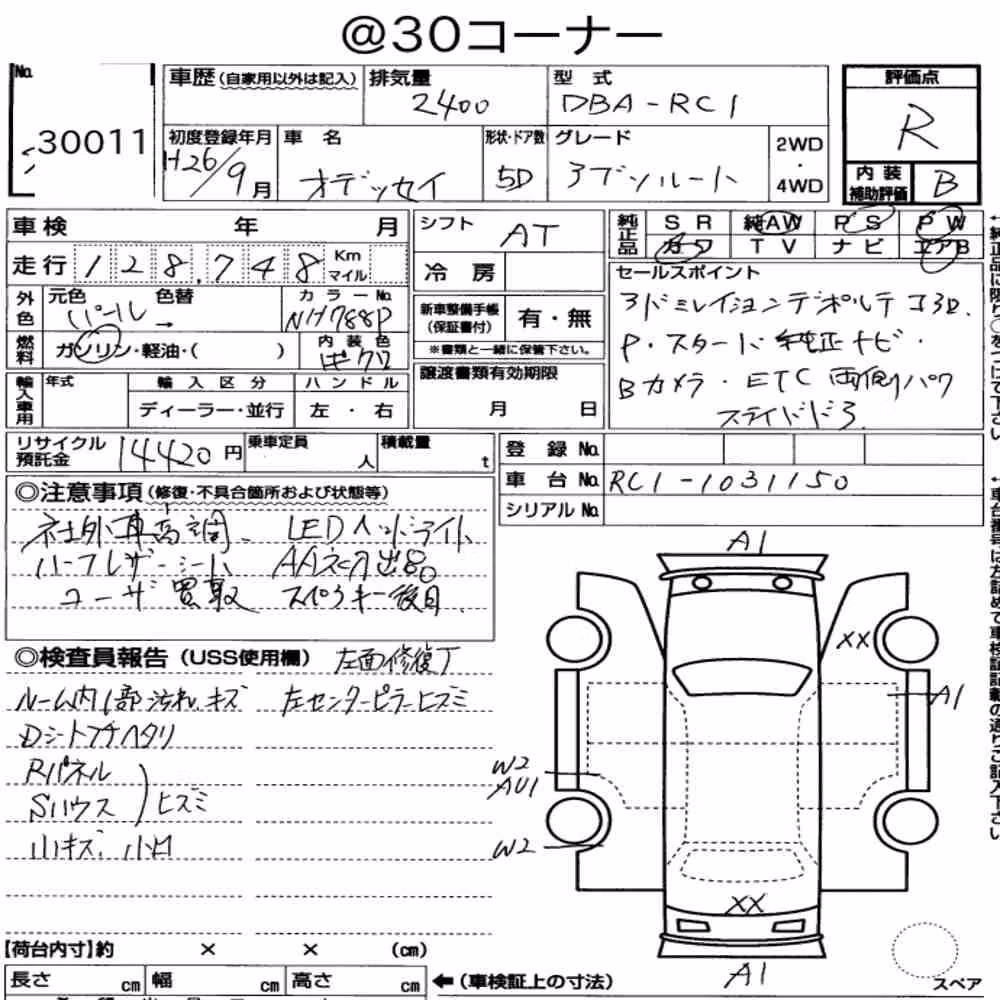 @30コーナー
No. 30011
車歴 (自家用以外は記入)
排気量 2400
型式 DBA-RC1
評価点 R
初度登録年月 H26/9月
車名 オデッセイ
形状・ドア数 5D
グレード アブソルート
2WD・4WD
内装補助評価 B
車検 年 月
シフト AT
純正品 SR 純AW PS PW
カワ TV ナビ エアB
走行 128,748 Km マイル
冷房
セールスポイント
3ドミレイションデポルテ エアロ.
P・スタート 純正ナビ・
Bカメラ・ETC 両側パワ
スライドドア
外色 元色 パール → 色替 カラーNo. NH788P
新車整備手帳 (保証書付) 有・無
※書類と一緒に保管下さい。
燃料 ガソリン・軽油・( )
内装色
譲渡書類有効期限
月 日
輸入車用 年式 輸入区分 ハンドル
ディーラー・並行 左・右
リサイクル預託金 14420円
乗車定員 人
積載量 t
登録No.
車台No. RC1-1031150
シリアルNo.
◎注意事項 (修復・不具合箇所および状態等)
社外車高調. LEDヘッドライト
ハーフレザーシート AAネク出品
ユーザ買取 スペアキー後日
◎検査員報告 (USS使用欄) 左面修復了
ルーム内1部汚れ キズ 左センターピラーヒズミ
Dシートプチヘタリ
Rパネル
Sハウス ヒズミ
小キズ. 小凹
A1
XX
A1
W2
AU1
W2
XX
A1
【荷台内寸】約 × × (cm)
長さ cm 幅 cm 高さ cm
←(車検証上の寸法)
スペア